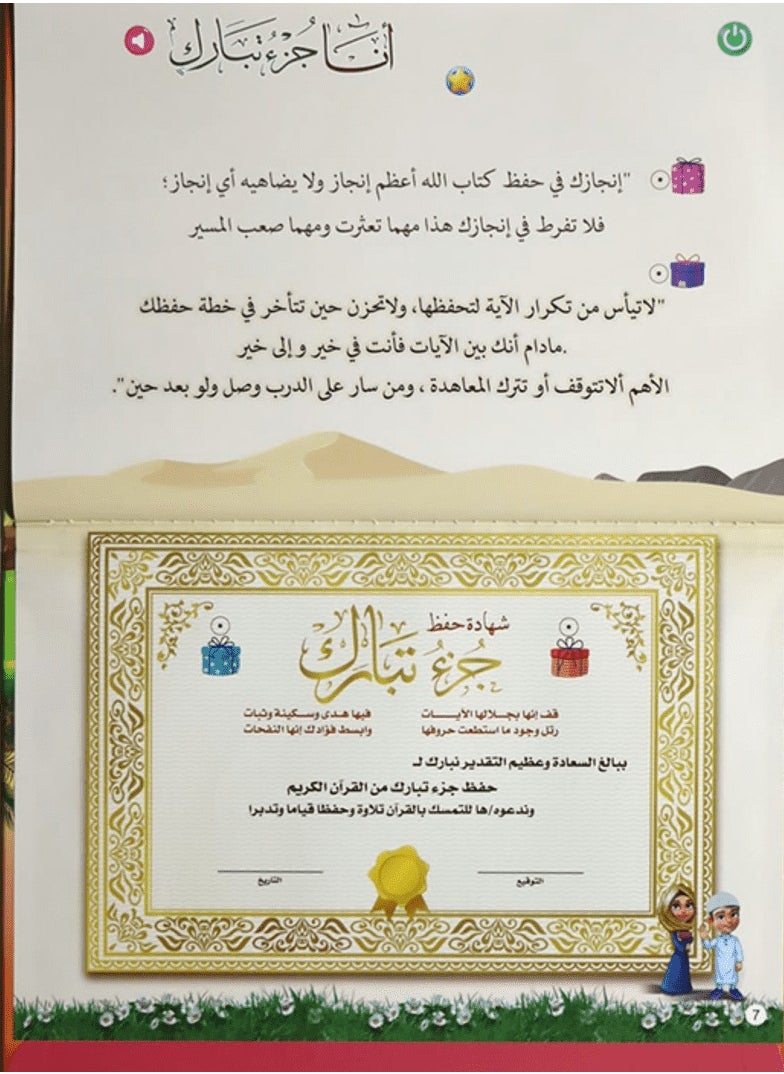 أنا جزء تبارك
"إنجازك في حفظ كتاب الله أعظم إنجاز ولا يضاهيه أي إنجاز؛
فلا تفرط في إنجازك هذا مهما تعثرت ومهما صعب المسير
"لاتيأس من تكرار الآية لتحفظها، ولاتحزن حين تتأخر في خطة حفظك
.مادام أنك بين الآيات فأنت في خير و إلى خير
الأهم ألاتتوقف أو تترك المعاهدة ، ومن سار على الدرب وصل ولو بعد حين".
شهادة حفظ
جزء تبارك
قف إنها بجلالها الآيـــات فيها هدى وسكينة وثبات
رتل وجود ما استطعت حروفها وابسط فؤادك إنها النفحات
ببالغ السعادة وعظيم التقدير نبارك لـ
حفظ جزء تبارك من القرآن الكريم
وندعوه/ها للتمسك بالقرآن تلاوة وحفظا قياما وتدبرا
التوقيع التاريخ
7